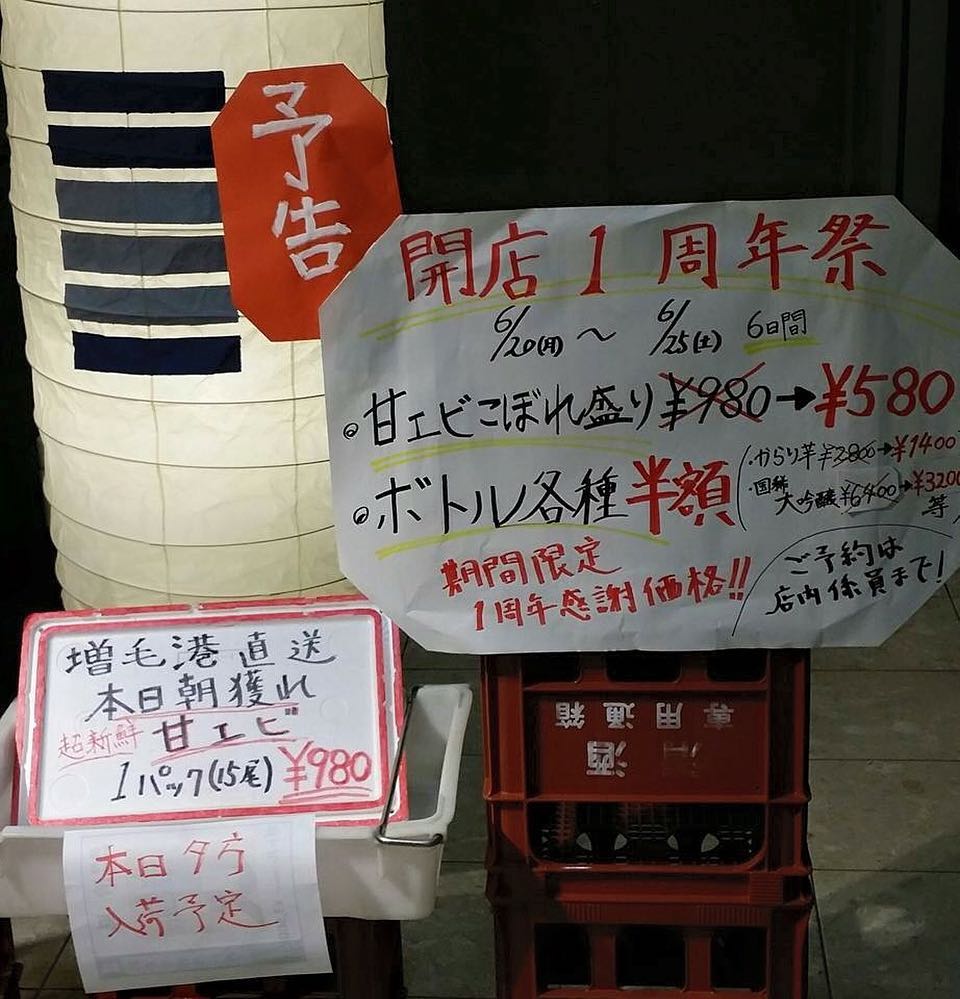 予告
開店1周年祭
6/20(月)～6/25(土) 6日間
甘エビこぼれ盛り¥980→¥580
ボトル各種半額
・からり芋¥2800→¥1400
・国稀
大吟醸¥6400→¥3200
等
期間限定
1周年感謝価格!!
ご予約は
店内係員まで!
増毛港直送
本日朝獲れ
超新鮮 甘エビ
1パック(15尾) ¥980
本日夕方
入荷予定
専用通箱
酒